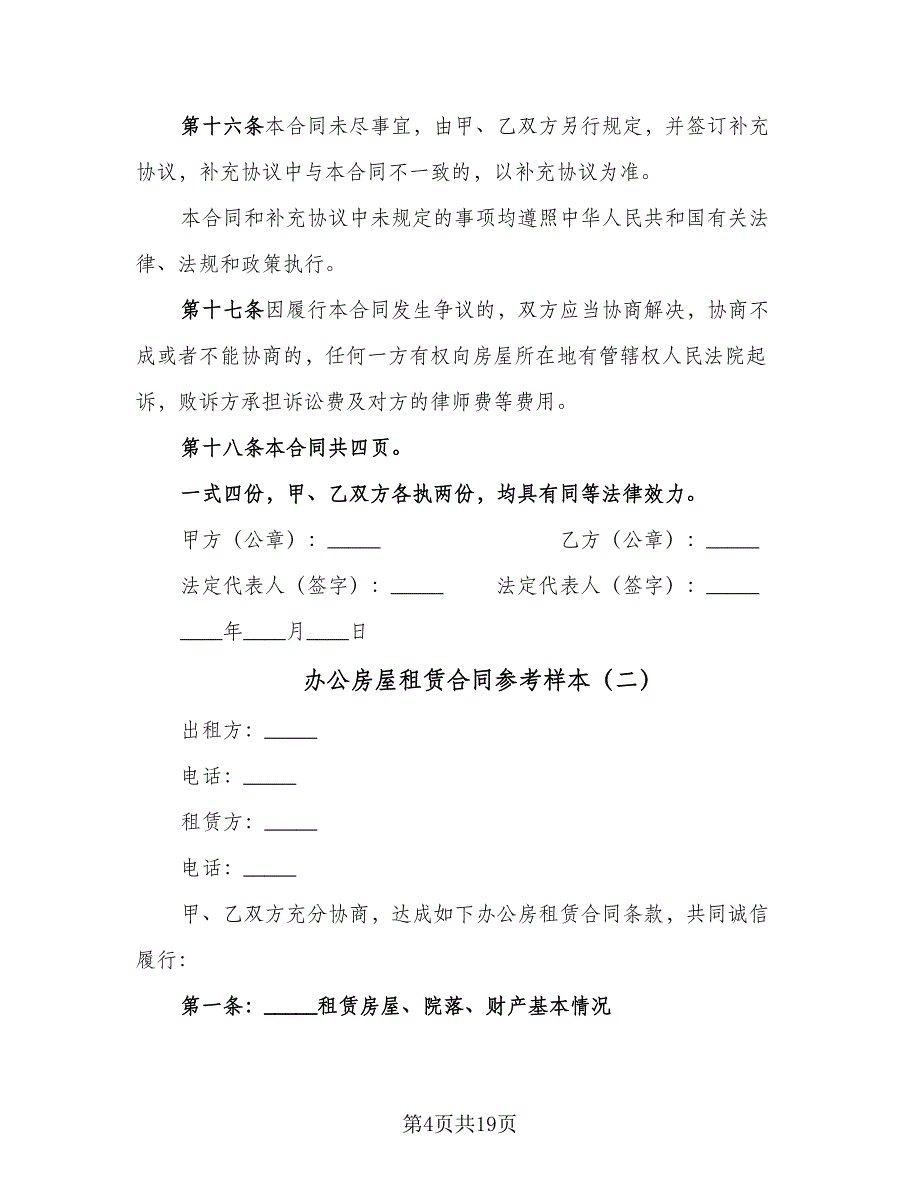 第十六条本合同未尽事宜，由甲、乙双方另行规定，并签订补充
协议，补充协议中与本合同不一致的，以补充协议为准。
本合同和补充协议中未规定的事项均遵照中华人民共和国有关法
律、法规和政策执行。
第十七条因履行本合同发生争议的，双方应当协商解决，协商不
成或者不能协商的，任何一方有权向房屋所在地有管辖权人民法院起
诉，败诉方承担诉讼费及对方的律师费等费用。
第十八条本合同共四页。
一式四份，甲、乙双方各执两份，均具有同等法律效力。
甲方（公章）：_____ 乙方（公章）：_____
法定代表人（签字）：_____ 法定代表人（签字）：_____
____年____月____日
办公房屋租赁合同参考样本（二）
出租方：_____
电话：_____
租赁方：_____
电话：_____
甲、乙双方充分协商，达成如下办公房租赁合同条款，共同诚信
履行：
第一条：_____租赁房屋、院落、财产基本情况
第4页共19页